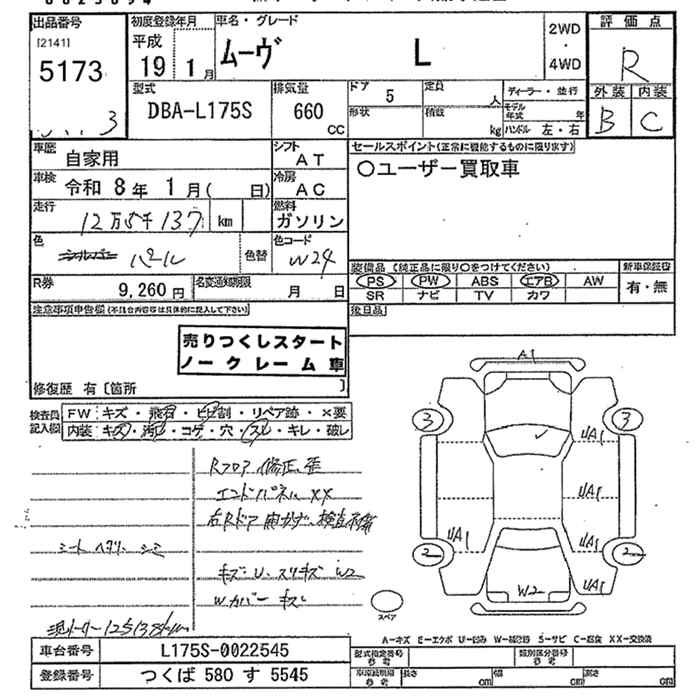 出品番号
[2141]
5173
3
初度登録年月
平成
19 1月
車名・グレード
ムーヴ L
2WD
・
4WD
評価点
R
外装 内装
B C
型式
DBA-L175S
排気量
660
CC
ドア 5
形状
定員 人
積載 kg
ディーラー・並行
モデル年式 年
ハンドル 左・右
車歴 自家用
シフト AT
車検 令和 8年 1月( 日)
冷房 AC
走行 12万5千137 km
燃料 ガソリン
色 シルバー パール
色替
色コード W24
R券 9,260円
名変通知期限 月 日
セールスポイント(正常に機能するものに限ります)
○ユーザー買取車
装備品 (純正品に限り○をつけてください)
PS PW ABS エアB AW
SR ナビ TV カワ
新車保証書
有・無
後日品
注意事項申告欄(不具合内容等は具体的に記入して下さい)
売りつくしスタート
ノークレーム車
修復歴 有〔箇所 〕
検査員記入欄
FW キズ・飛石・ヒビ割・リペア跡・×要
内装 キズ・汚れ・コゲ・穴・スレ・キレ・破レ
Rフロア修正、歪
エンドパネル XX
シート ヘタリ シミ
キズ・U、スリキズ W2
Wカバー キズ
A1
3 3
UA1
UA1
UA1 UA1
2 2
W2 UA1
スペア
A-キズ E-エクボ U-凹み W-補修跡 S-サビ C-腐食 XX-交換済
車台番号 L175S-0022545
登録番号 つくば 580 す 5545
型式指定番号 参考
類別区分番号 参考
車両規制 参考
長さ cm 幅 cm 高さ cm